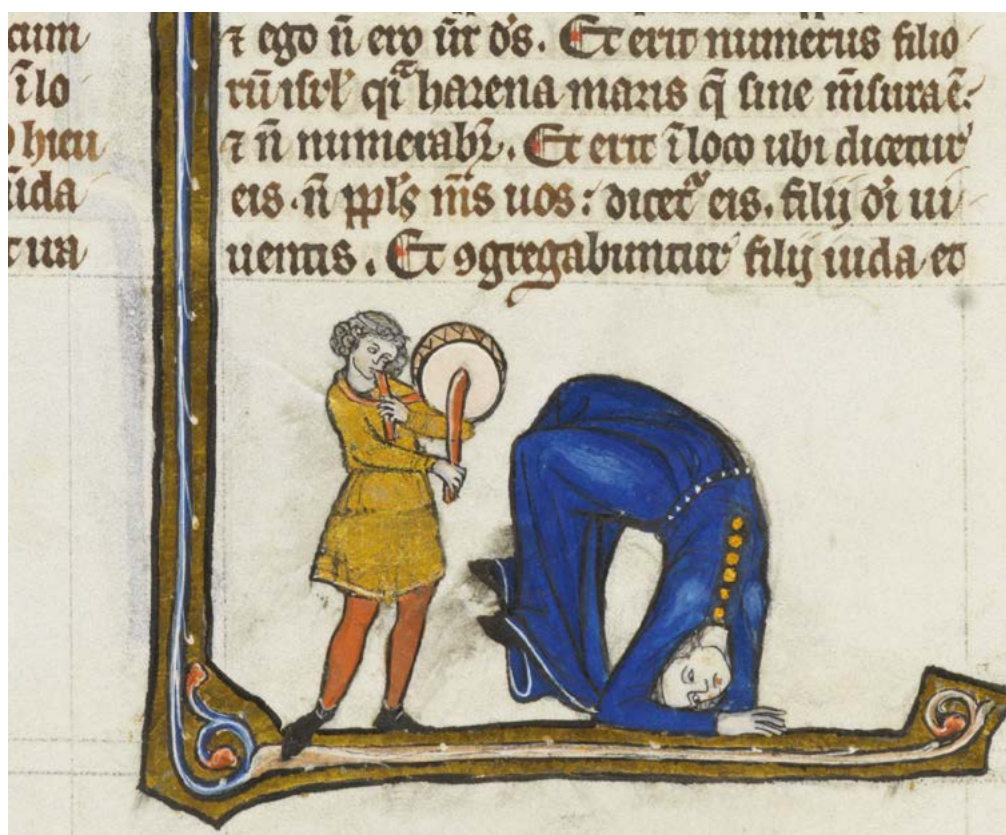 cum
ĩ lo
hicu
ũda
t ua
⁊ ego ñ ero ũr ds̃. Et erit numerus filio
rũ isrł qͣ harena maris q̃ sine m̃sura ẽ:
⁊ ñ numerabr̃. Et erit ĩ loco ubi dicetur
eis. ñ ppl̃s m̃s uos: dicet᷑ eis. filij dı̃ ui
uentis. Et ꝯgregabuntur filij iuda et